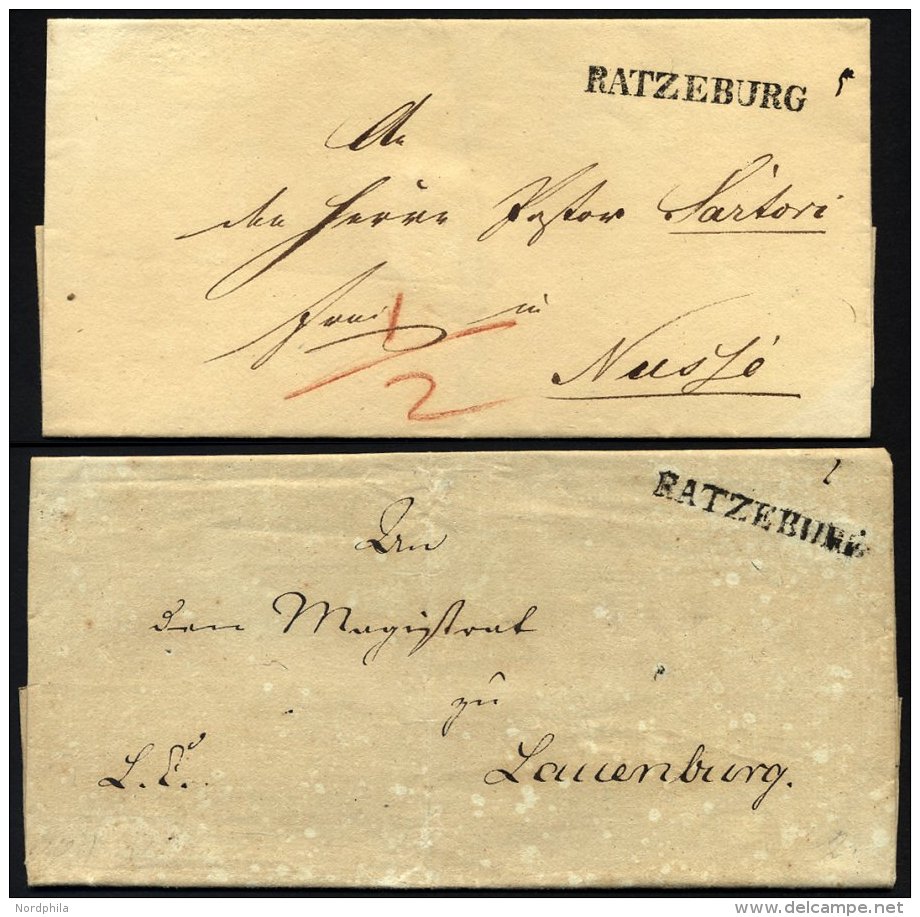 RATZEBURG
An
den Herrn Pastor Sartori
frei in
1/2
Nusse
RATZEBURG
An
den Magistrat
zu
L. S. Lauenburg.
Nordphila
delcampe.net